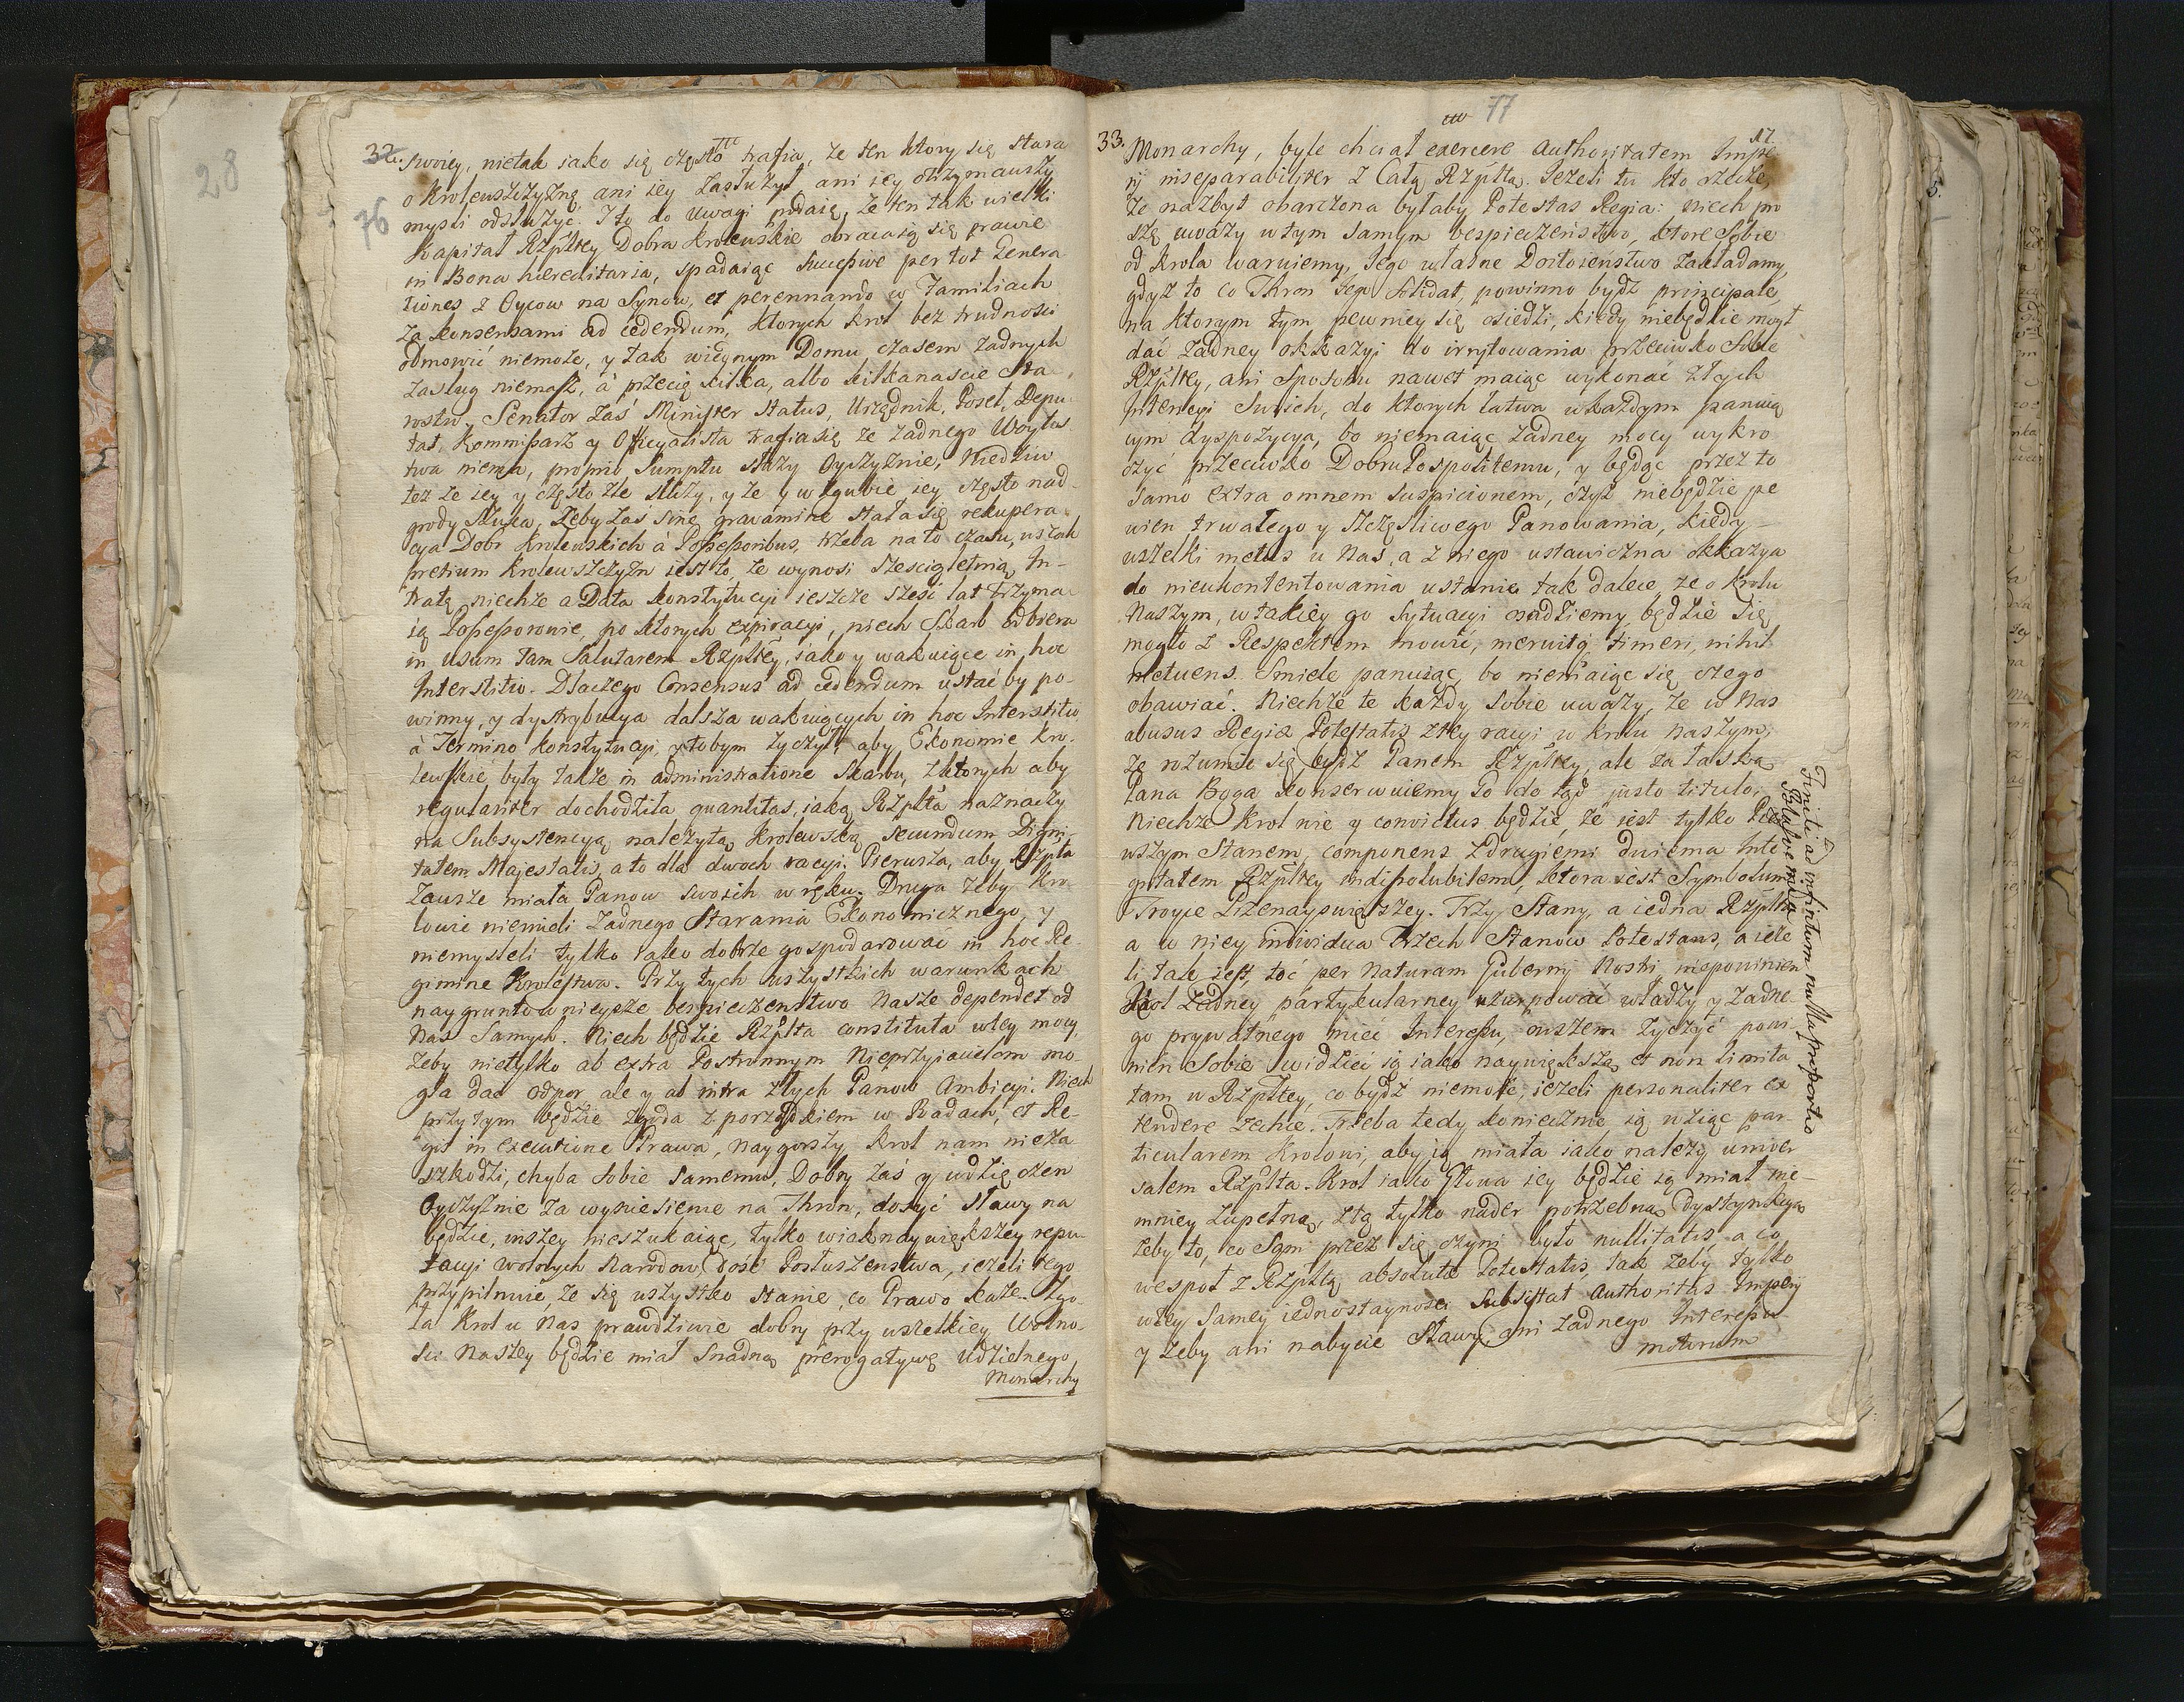 28
76
32.
swoiey, nietak iako się często trafia, że ten ktory się stara
o Krolewszczyznę, ani iey zasłużył, ani iey otrzymawszy
mysli odsłużyc. I to do uwagi podaię, że ten tak wielki
Kapitał Rzpltey Dobra Krolewskie obracaią się prawie
in Bona hæreditaria, spadaiąc successive per tot Genera
tiones z Oycow na Synow, et perennando w Familiach
za konsensami ad cedendum, ktorych Krol bez trudnosci
odmowić niemoże, y tak wiednym Domu, czasem żadnych
zasług niemasz, à przecię kilka, albo kilkanascie Sta
rostw, Senator zaś Minister Status, Urzędnik, Poseł, Depu
tat, Kommissarz y Officyalista trafia się że żadnego Woytos
twa niema, proprio Sumptu służy Oyczyznie, Niedziw
też że iey y często zle służy, y że y w zgubie iey często nad-
grody szuka, żeby zaś sine gravamine stała się rekupera
cya Dobr Krolewskich à Possessoribus, trzeba na to czasu, wszak
pretium Krolewszczyzn iest to, że wynosi szescioletnią In-
tratę, niechże a Data konstytucyi ieszcze szesc lat trzyma
ią Possessorowie, po ktorych expiracyi, niech Skarb odbiera
in usum tam Salutarem Rzpltey, iako y wakuiące in hoc
Interstitio. Dlaczego Consensus ad cedendum ustać by po-
winny, y dystrybucya dalsza wakuiących in hoc Interstitio
à Termino konstytucyi, y tobym życzył, aby Ekonomie Kro-
lewskie były także in administratione Skarbu, z ktorych aby
regulariter dochodziła quantitas, iaką Rzplta naznaczy
na Subsystencyą należytą Krolewską secundum Digni-
tatem Majestatis, a to dla dwoch racyi. Pierwsza, aby Rzplta
zawsze miała Panow swoich w ręku. Druga żeby Kro
lowie niemieli żadnego starania Ekonomicznego, y
niemysleli tylko iako dobrze gospodarować in hoc Re-
gimine Krolestwa. Przy tych wszystkich warunkach
naygruntownieysze bespieczenstwo Nasze dependet od
Nas Samych. Niech będzie Rzplta constituta wtey mocy,
żeby nietylko ab extra Postronnym Nieprzyiaciołom mo-
gła dać odpor ale y ab intra złych Panow Ambicyi. Niech
przytym będzie zgoda z porządkiem w Radach, et Re-
git in executione Prawa, naygorszy Krol nam nieza
szkodzi, chyba sobie samemu, Dobry zaś y wdzięczen
Oyczyznie za wyniesienie na Thron, dosyć sławy na
będzie, inszey nieszukaiąc, tylko wiak naywiększey repu-
tacyi wolnych Narodow, dość Posłuszenstwa, ieżeli tego
przypilnuie, że się wszystko stanie, co Prawo każe. Zgo
ła Krol u Nas prawdziwie dobry przy wszelkiey Wolno-
sci Naszey będzie miał snadną prerogatywę udzielnego
Monarchy
77
33.
17.
Monarchy, byle chciał exercere Authoritatem Impe
rij inseparabiliter z Całą Rzpltą. Jeżeli tu kto rzecze,
że nazbyt obarczona byłaby Potestas Regia: niech pro
szę uważy w tym samym bespieczeństwo, ktore Sobie
od Krola waruiemy, Jego własne Dostoienstwo zakładamy,
gdyż to co Thron Jego solidat, powinno bydz principale,
na ktorym tym pewniey się osiedzi, kiedy niebędzie mogł
dać żadney okkazyi do irrytowania przeciwko Sobie
Rzpltey, ani sposobu nawet maiąc wykonać złych
Intencyi Swoich, do ktorych łatwa w każdym panuią
cym dyspozycya, bo niemaiąc żadney mocy wykro
czyć przeciwko Dobru Pospolitemu, y będąc przez to
samo extra omnem suspicionem, czyż niebędzie pe
wien trwałego y szczęsliwego Panowania, kiedy
wszelki metus u Nas, a z niego ustawiczna okkazya
do nieukontentowania ustanie tak dalece, że o Krolu
Naszym, w takiey go sytuacyi osadziemy, będzie się
mogło z Respektem mowić, meruitq; timeri, nihil
metuens. Smiele panuiąc, bo niemaiąc się czego
obawiać. Niechże te każdy Sobie uważy, że u Nas
abusus Regiæ Potestatis z tey racyi w Krolu Naszym,
że rozumie się bydź Panem Rzpltey, ale za łaską
Pana Boga konserwuiemy Go do tąd justo titulo,
Niechże Krol nie y convictus będzie, że iest tylko Pier
wszym Stanem, componens z drugiemi dwiema Inte
gritatem Rzpltey indissolubilem, ktora iest Symbolum
Troyce Przenayswiętszey. Trzy Stany, a iedna Rzplta
a w niey individua Trzech Stanow Potestas, a ieże
li tak iest, toć per Naturam Gubernij Nostri niepowinien
Krol żadney partykularney uzurpować władzy y żadne-
go prywatnego mieć Interessu, owszem życzyć powi
nien Sobie widzieć ią iako naywiększą, et non limita
tam w Rzpltey, co bydź niemoże, ieżeli personaliter ex
tendere zechce. Trzeba tedy koniecznie ią wziąć par
ticularem Krolowi, aby ią miała iako należy univer
salem Rzplta. Krol iako Głowa iey będzie ią miał nie-
mniey zupełną, z tą tylko nader potrzebną dystynkcyą
żeby to, co Sam przez się czyni było nullitatis, a co
wespoł z Rzpltą absolutæ Potestatis, tak żeby tylko
wtey Samey iednostaynosci Subsistat Authoritas Imperij
y żeby ani nabycie Sławy, ani żadnego Interessu
motivum
Finiti ad infinitum nulla proportio
5.